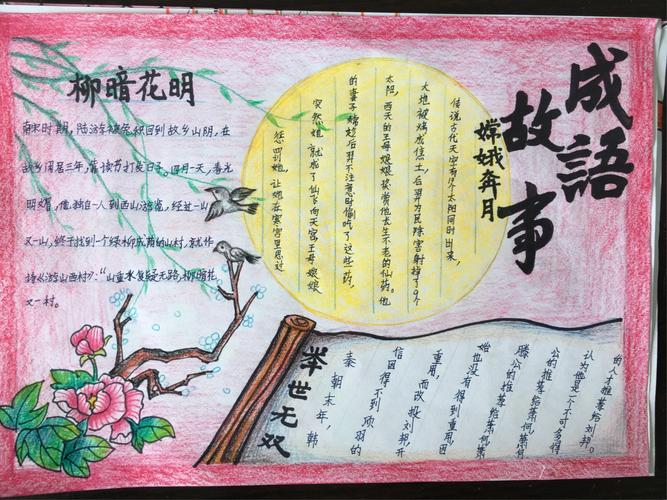 成語
故事
柳暗花明
南宋时期，陆游被免职回到故乡山阴，在
故乡闲居三年，靠读书打发日子。四月一天，春光
明媚，他独自一人到西山游览，经过一山
又一山，终于找到一个绿柳成荫的山村，就作
诗《游山西村》："山重水复疑无路，柳暗花
又一村。
嫦娥奔月
传说古代天空有10个太阳同时出来，
大地被烤成焦土，后羿为民除害射掉了9个
太阳，西天的王母娘娘奖赏他长生不老的仙药。他
的妻子嫦娥趁后羿不注意时偷吃了这些药，
突然她就成了仙飞向天宫，王母娘娘
惩罚她，让她在寒宫里思过
举世无双
秦朝末年，韩
信因得不到项羽的
重用，而改投刘邦，开
始也没有得到重用，因
滕公的推荐给萧何，萧
公的推荐给萧何，萧何
认为他是一个不可多得
的人才推荐给刘邦。